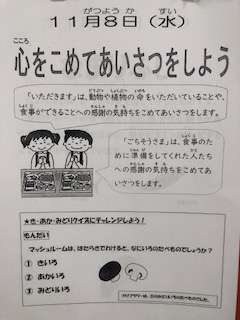 がつようか すい
11月8日(水)
こころ
心をこめてあいさつをしよう
「いただきます」は、動物や植物の命をいただいていることや、
食事ができることへの感謝の気持ちをこめてあいさつをします。
「ごちそうさま」は、食事のた
めに準備をしてくれた人たち
への感謝の気持ちをこめてあ
いさつをします。
★き・あか・みどりクイズにチャレンジしよう!
もんだい
マッシュルームは、はたらきでわけると、なにいろのたべものでしょうか?
① きいろ
② あかいろ
③ みどりいろ